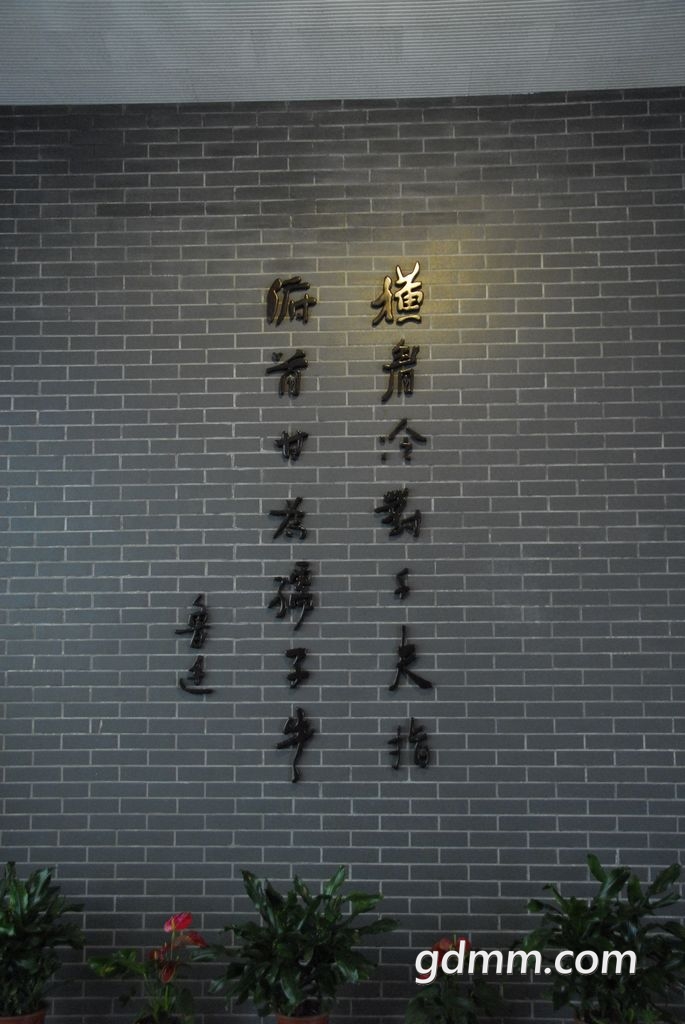 横眉冷對千夫指
俯首甘為孺子牛
魯迅
gdmm.com